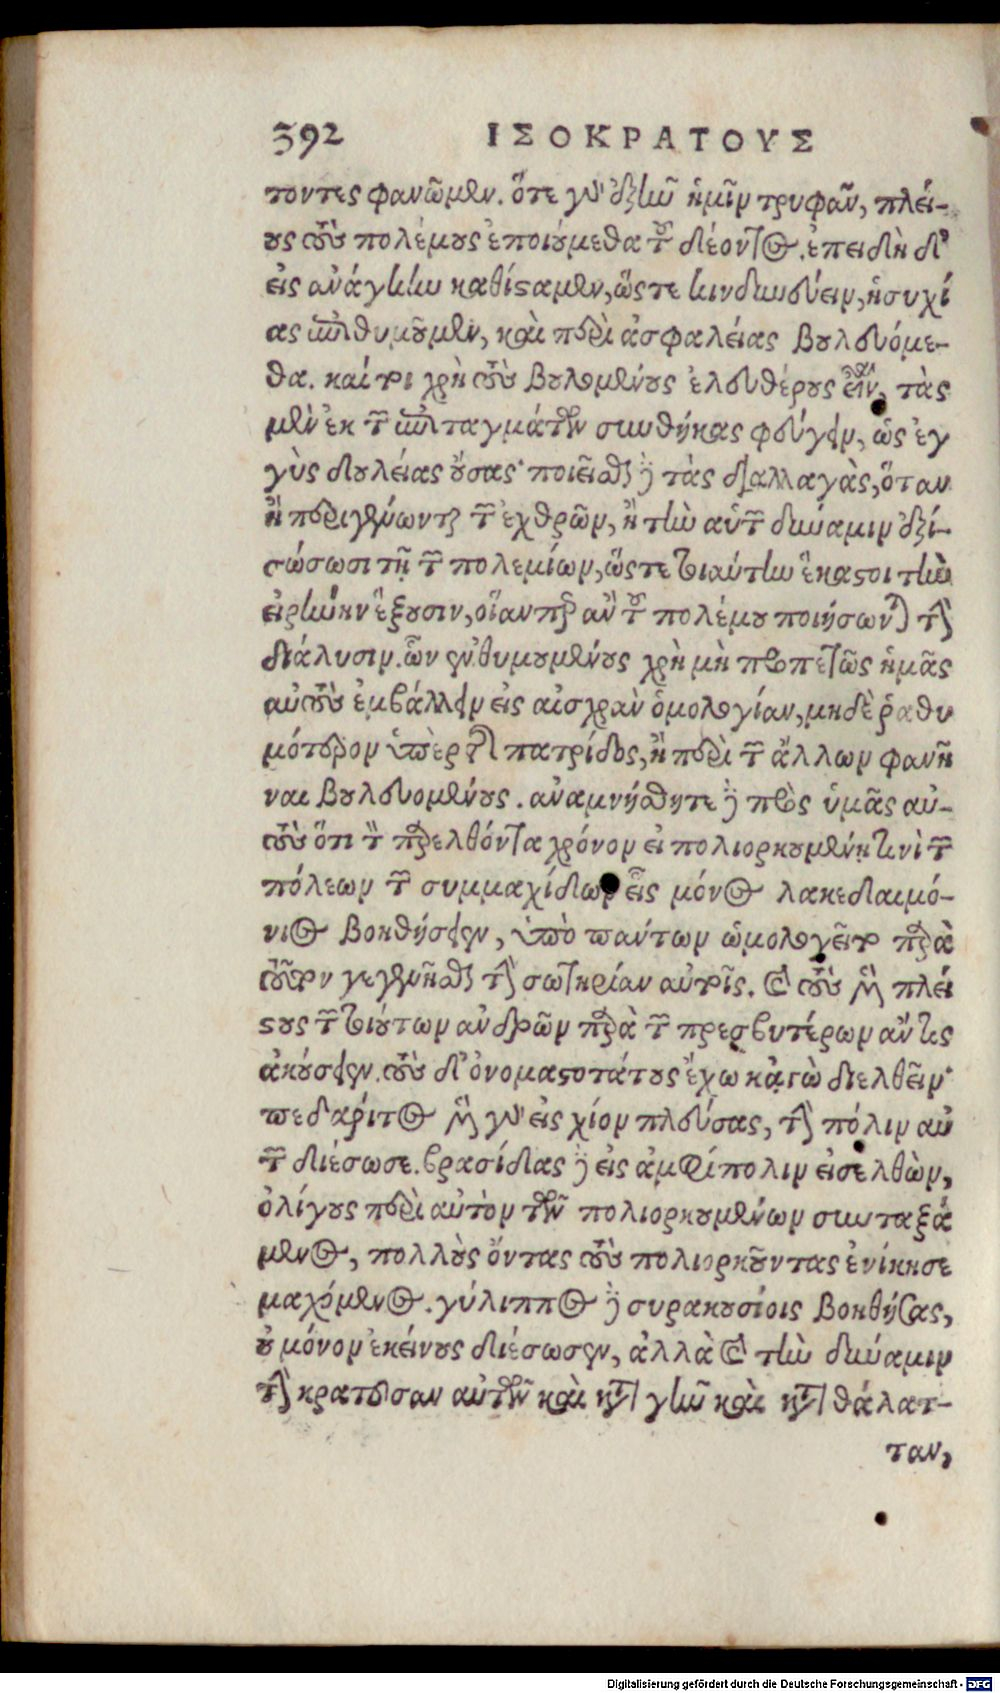 392 ΙΣΟΚΡΑΤΟΥΣ
τοντες φανῶμεν. ὅτε γὰρ ἐξῆν ἡμῖν τρυφᾶν, πλεί-
ους τοὺς πολέμους ἐποιούμεθα τοῦ δέοντος. ἐπειδὴ δ'
εἰς ἀνάγκην καθίσαμεν, ὥστε κινδυνεύειν, ἡσυχί
ας ἐπιθυμοῦμεν, καὶ περὶ ἀσφαλείας βουλευόμε-
θα. καίτοι χρὴ τοὺς βουλομένους ἐλευθέρους εἶναι, τὰς
μὲν ἐκ τῶν ἐπιταγμάτων συνθήκας φεύγειν, ὡς ἐγ
γὺς δουλείας οὔσας· ποιεῖσθαι δὲ τὰς διαλλαγὰς, ὅταν
ἢ περιγένωνται τῶν ἐχθρῶν, ἢ τὴν αὑτῶν δύναμιν ἐξι-
σώσωσι τῇ τῶν πολεμίων, ὥστε τοιαύτην ἕκαστοι τὴν
εἰρήνην ἕξουσιν, οἵαν περ ἂν τοῦ πολέμου ποιήσωνται τὴν
διάλυσιν. ὧν ἐνθυμουμένους χρὴ μὴ προπετῶς ἡμᾶς
αὐτοὺς ἐμβάλλειν εἰς αἰσχρὰν ὁμολογίαν, μηδὲ ῥαθυ
μότερον ὑπὲρ τῆς πατρίδος, ἢ περὶ τῶν ἄλλων φανῆ
ναι βουλευομένους. ἀναμνήσθητε δὲ πρὸς ὑμᾶς αὐ-
τοὺς ὅτι τὸν παρελθόντα χρόνον εἰ πολιορκουμένῃ τινὶ τῶν
πόλεων τῶν συμμαχίδων εἷς μόνος λακεδαιμό-
νιος βοηθήσειεν, ὑπὸ πάντων ὡμολογεῖτο παρὰ
τοῦτον γεγενῆσθαι τὴν σωτηρίαν αὐτοῖς. καὶ τοὺς μὲν πλεί
στους τῶν τοιούτων ἀνδρῶν παρὰ τῶν πρεσβυτέρων ἄν τις
ἀκούσειεν. τοὺς δ' ὀνομαστοτάτους ἔχω κἀγὼ διελθεῖν·
πεδάριτος μὲν γὰρ εἰς χίον πλεύσας, τὴν πόλιν αὐ
τῶν διέσωσε. βρασίδας δὲ εἰς ἀμφίπολιν εἰσελθὼν,
ὀλίγους περὶ αὐτὸν τῶν πολιορκουμένων συνταξά
μενος, πολλοὺς ὄντας τοὺς πολιορκοῦντας ἐνίκησε
μαχόμενος. γύλιππος δὲ συρακουσίοις βοηθήσας,
οὐ μόνον ἐκείνους διέσωσεν, ἀλλὰ καὶ τὴν δύναμιν
τὴν κρατοῦσαν αὐτῶν καὶ κατὰ γῆν καὶ κατὰ θάλατ-
ταν,
Digitalisierung gefördert durch die Deutsche Forschungsgemeinschaft - DFG